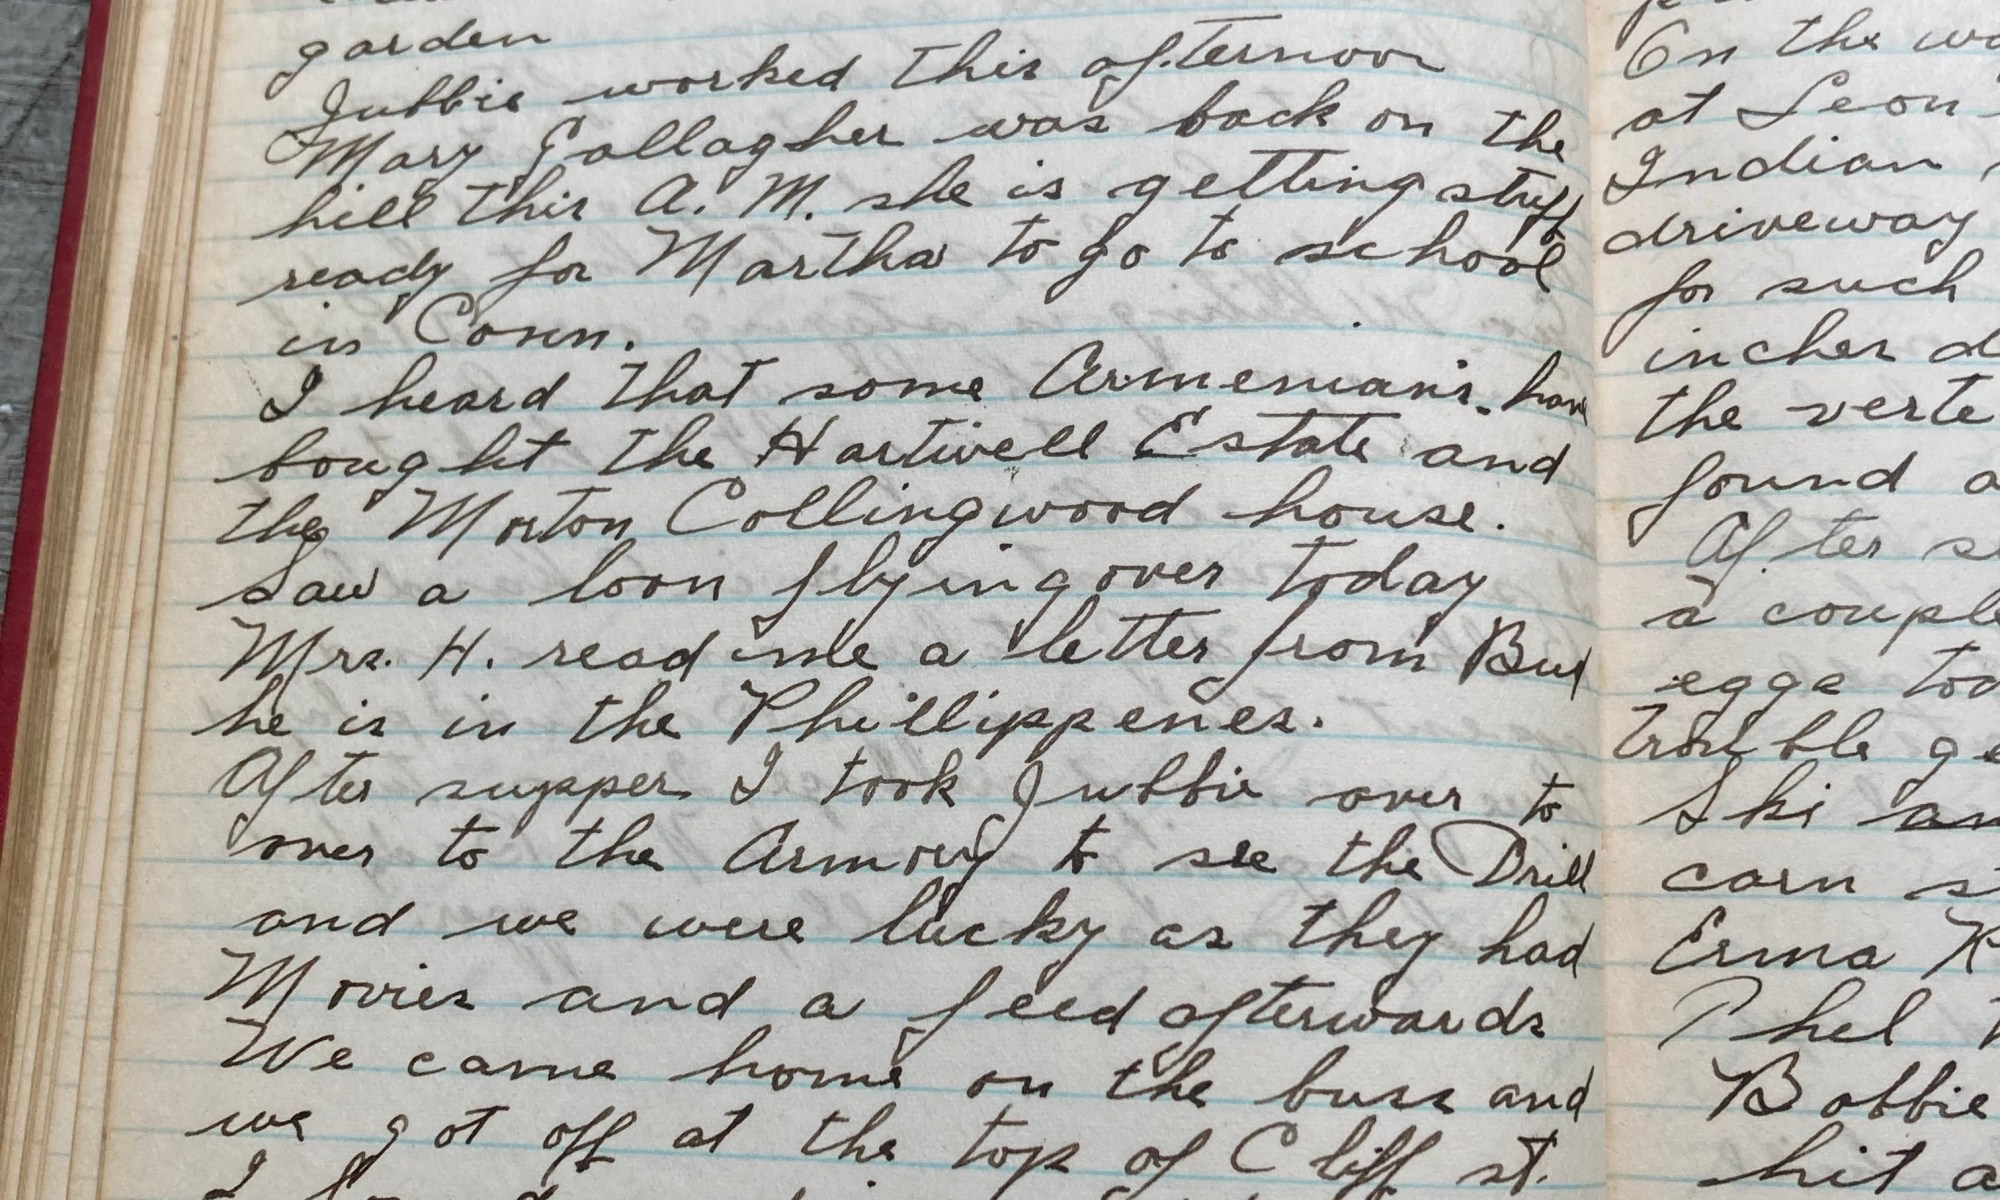 garden
Jubbie worked this afternoon
Mary Gallagher was back on the
hill this A. M. she is getting stuff
ready for Martha to go to school
in Conn.
I heard that some Armenians have
bought the Hartwell Estate and
the Morton Collingwood house.
Saw a loon flying over today
Mrs. H. read me a letter from Bud
he is in the Phillippenes.
After supper I took Jubbie over to
over to the Armory to see the Drill
and we were lucky as they had
Movies and a feed afterwards
We came home on the buss and
we got off at the top of Cliff st.
I
On the
at Leon
Indian
driveway
for such
inches
the
found
After
a
eggs
trouble
Ski
corn
Erma
Phel
Bobbie
hit